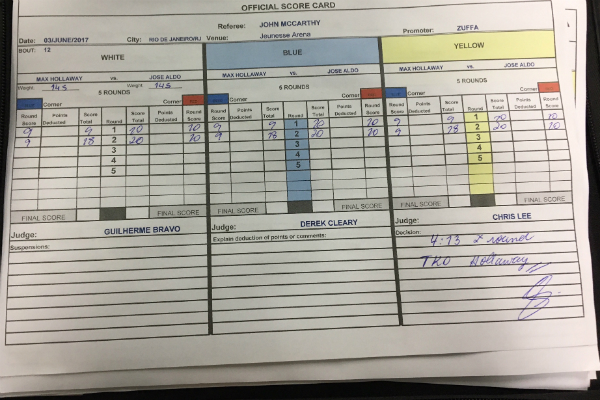 OFFICIAL SCORE CARD
Referee: JOHN MCCARTHY
Date: 03/JUNE/2017 City: RIO DE JANEIRO/RJ Venue: Jeunesse Arena Promoter: ZUFFA
BOUT: 12
WHITE BLUE YELLOW
MAX HOLLAWAY vs. JOSE ALDO MAX HOLLAWAY vs. JOSE ALDO MAX HOLLAWAY vs. JOSE ALDO
Weight 145 Weight 145
5 ROUNDS 5 ROUNDS 5 ROUNDS
Corner Corner Corner Corner Corner Corner
Round Score Points Deducted Score Total Round Score Total Points Deducted Round Score Round Score Points Deducted Score Total Round Score Total Points Deducted Round Score Round Score Points Deducted Score Total Round Score Total Points Deducted Round Score
9 9 1 10 9 9 1 10 9 9 1 10
9 18 2 20 10 9 18 2 20 10 9 18 2 20 10
3 3 3
4 4 4
5 5 5
FINAL SCORE FINAL SCORE FINAL SCORE FINAL SCORE FINAL SCORE FINAL SCORE
Judge: GUILHERME BRAVO Judge: DEREK CLEARY Judge: CHRIS LEE
Suspensions: Explain deduction of points or comments: Decision:
4:13 2 round
TKO Hollaway